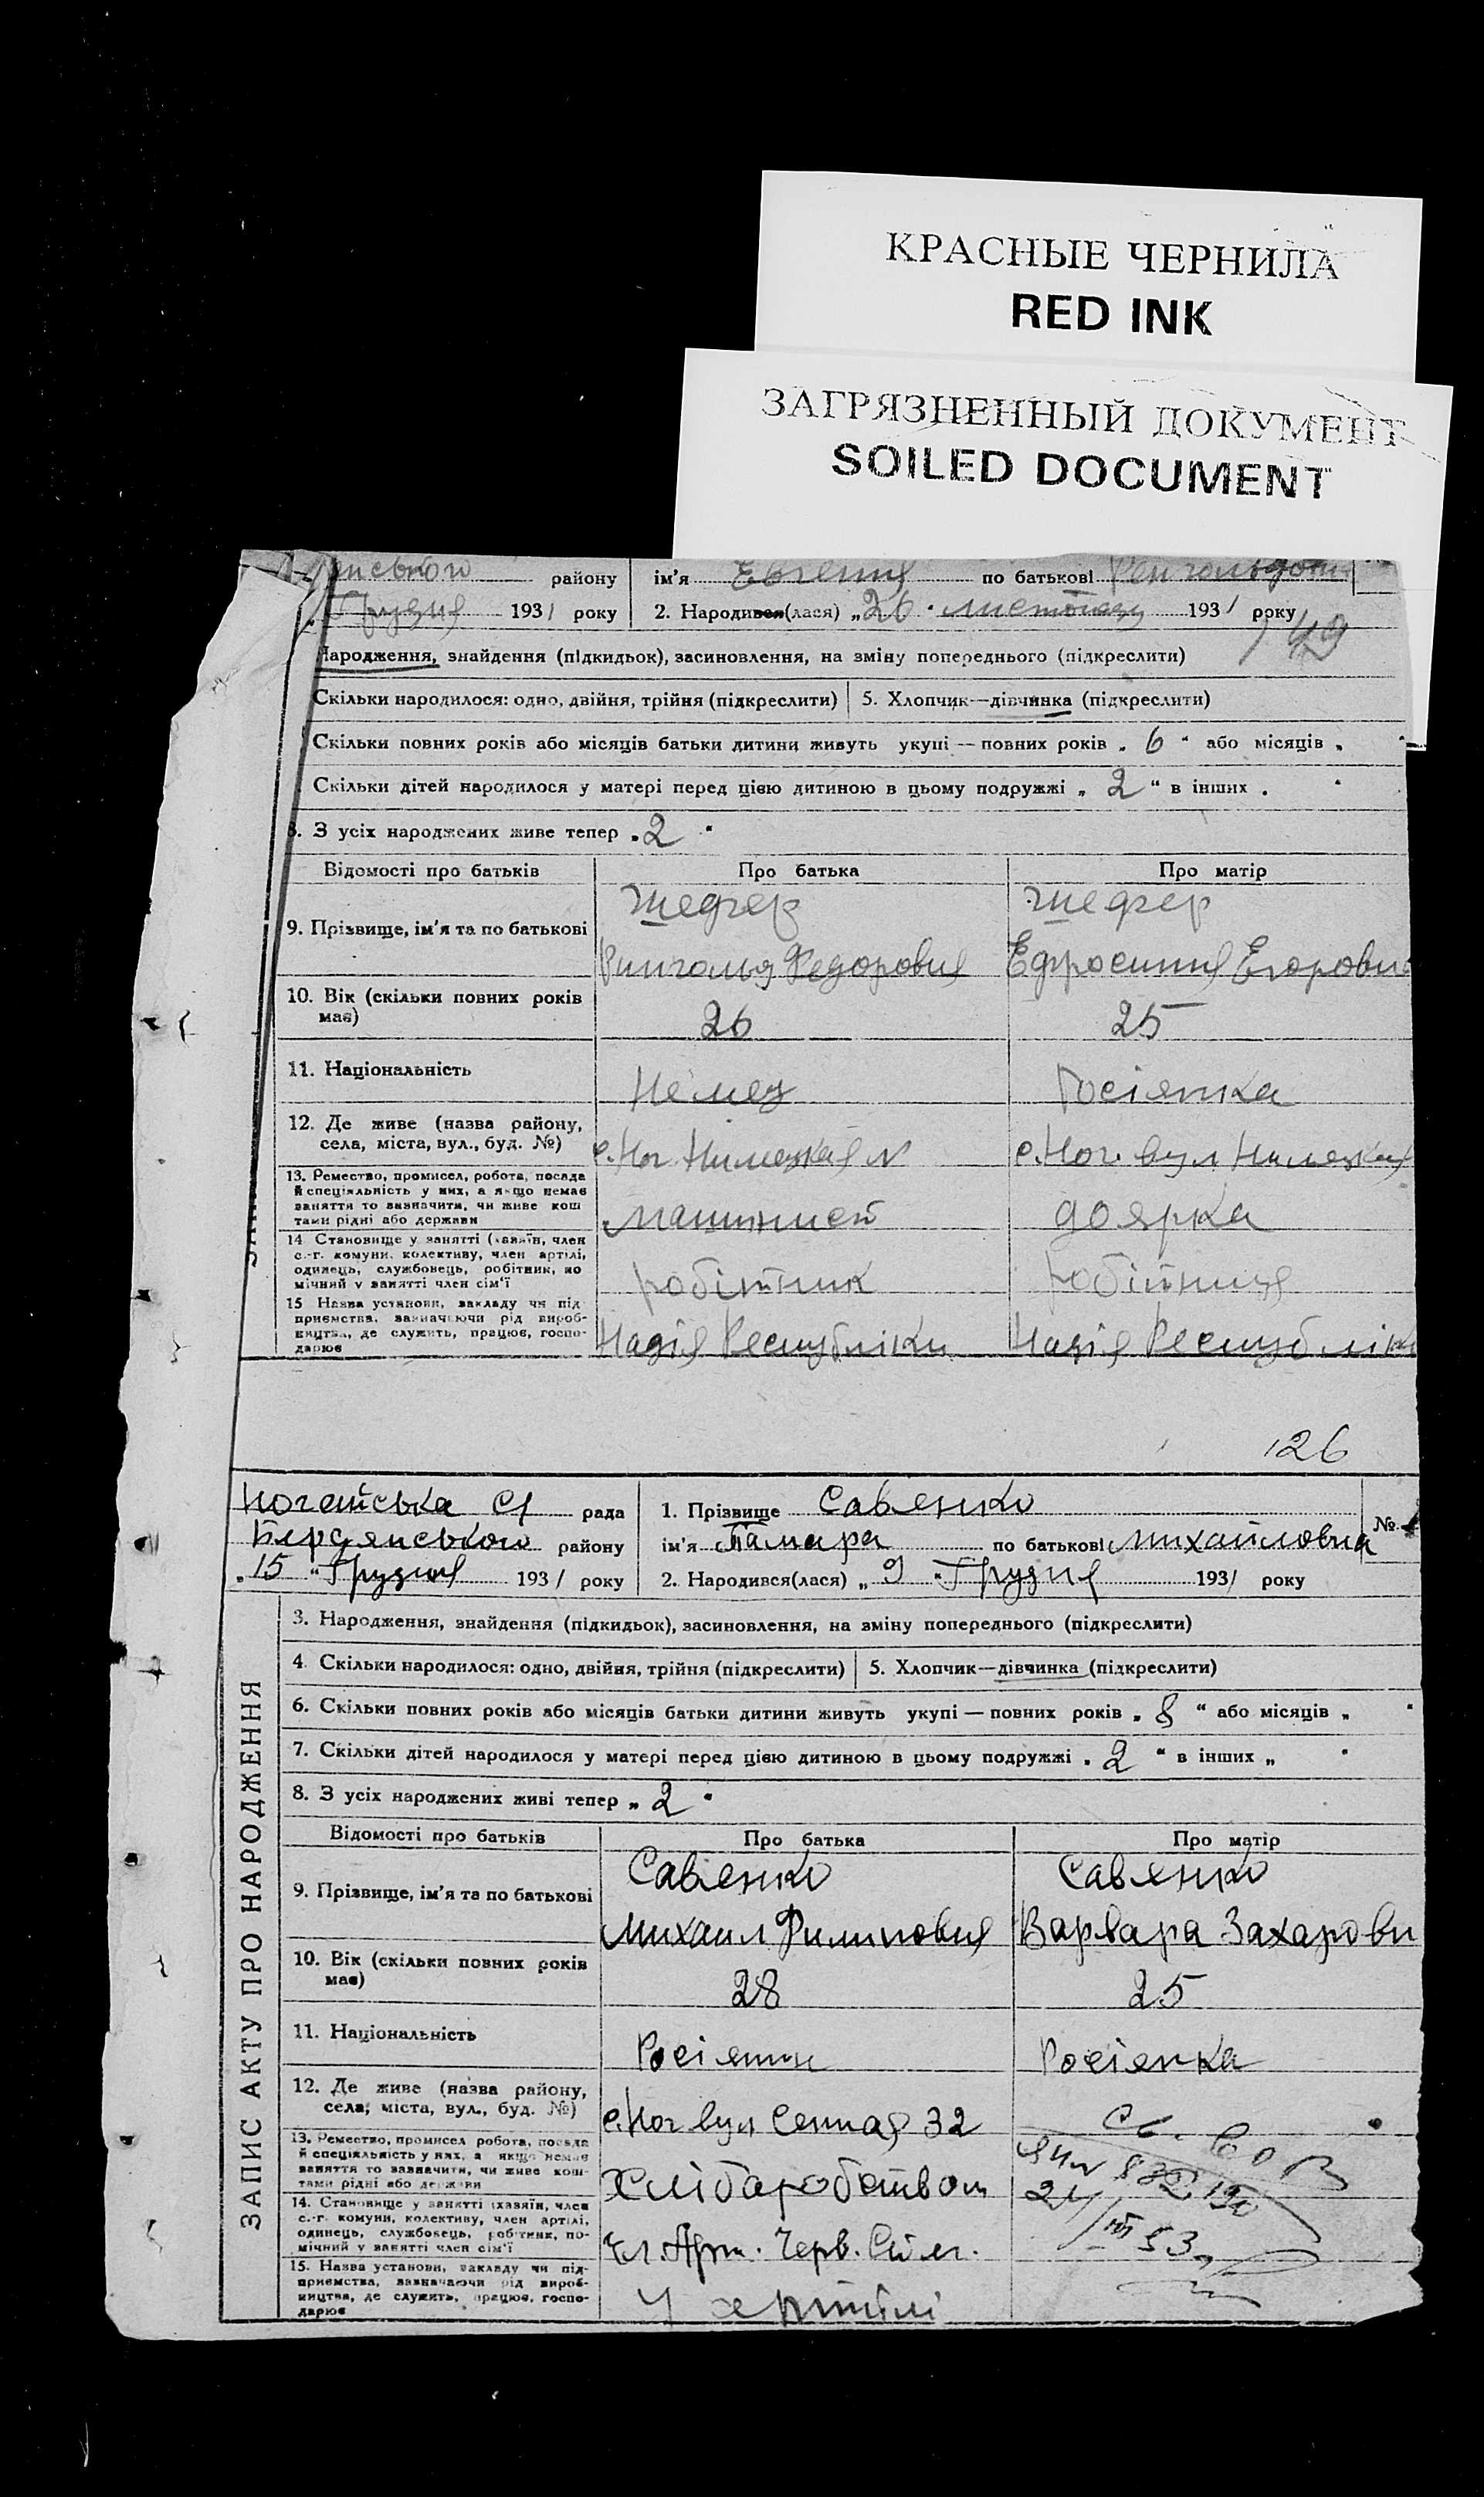 КРАСНЫЕ ЧЕРНИЛА
RED INK
ЗАГРЯЗНЕННЫЙ ДОКУМЕНТ
SOILED DOCUMENT
району ім'я Евгения по батькові
Грудня 1931 року 2. Народився(лася) „26" листопаду 1931 року
149
Народження, знайдення (підкидьок), засиновлення, на зміну попереднього (підкреслити)
Скільки народилося: одно, двійня, трійня (підкреслити) 5. Хлопчик—дівчинка (підкреслити)
Скільки повних років або місяців батьки дитини живуть укупі — повних років „6" або місяців „ "
Скільки дітей народилося у матері перед цією дитиною в цьому подружжі „2" в інших „ "
8. З усіх народжених живе тепер „2"
Відомості про батьків Про батька Про матір
9. Прізвище, ім'я та по батькові
Федорович Ефросиния Егоровн
10. Вік (скільки повних років має) 26 25
11. Національність Немец Росіянка
12. Де живе (назва району, села, міста, вул., буд. №) с. Ног. Нимецкая N с. Ног. вул Нимецкая
13. Ремество, промисел, робота, посада й спеціяльність у них, а якщо немає заняття то зазначити, чи живе коштами рідні або держави машинист доярка
14. Становище у занятті (хазяїн, член с.-г. комуни, колективу, член артілі, одинець, службовець, робітник, помічний у занятті член сім'ї робітник робітниця
15. Назва установи, закладу чи підприємства, зазначаючи рід виробництва, де служить, працює, господарює Надія Республіки Надія Республіки
126
Ногайська с/ рада 1. Прізвище Савенко №
Бердянського району ім'я Тамара по батькові Михайловна
„15" Грудня 1931 року 2. Народився(лася) „9" Грудня 1931 року
ЗАПИС АКТУ ПРО НАРОДЖЕННЯ
3. Народження, знайдення (підкидьок), засиновлення, на зміну попереднього (підкреслити)
4. Скільки народилося: одно, двійня, трійня (підкреслити) 5. Хлопчик—дівчинка (підкреслити)
6. Скільки повних років або місяців батьки дитини живуть укупі — повних років „8" або місяців „ "
7. Скільки дітей народилося у матері перед цією дитиною в цьому подружжі „2" в інших „ "
8. З усіх народжених живі тепер „2"
Відомості про батьків Про батька Про матір
9. Прізвище, ім'я та по батькові Савенко Савенко
Михаил Филипович Варвара Захарови
10. Вік (скільки повних років має) 28 25
11. Національність Росіянин Росіянка
12. Де живе (назва району, села, міста, вул., буд. №) с. Ног вул Сенная 32
13. Ремество, промисел, робота, посада й спеціяльність у них, а якщо немає заняття то зазначити, чи живе коштами рідні або держави Хліборобством
14. Становище у занятті (хазяїн, член с.-г. комуни, колективу, член артілі, одинець, службовець, робітник, помічний у занятті член сім'ї Чл. Арт. Черв.
15. Назва установи, закладу чи підприємства, зазначаючи рід виробництва, де служить, працює, господарює У артілі
24/III 53